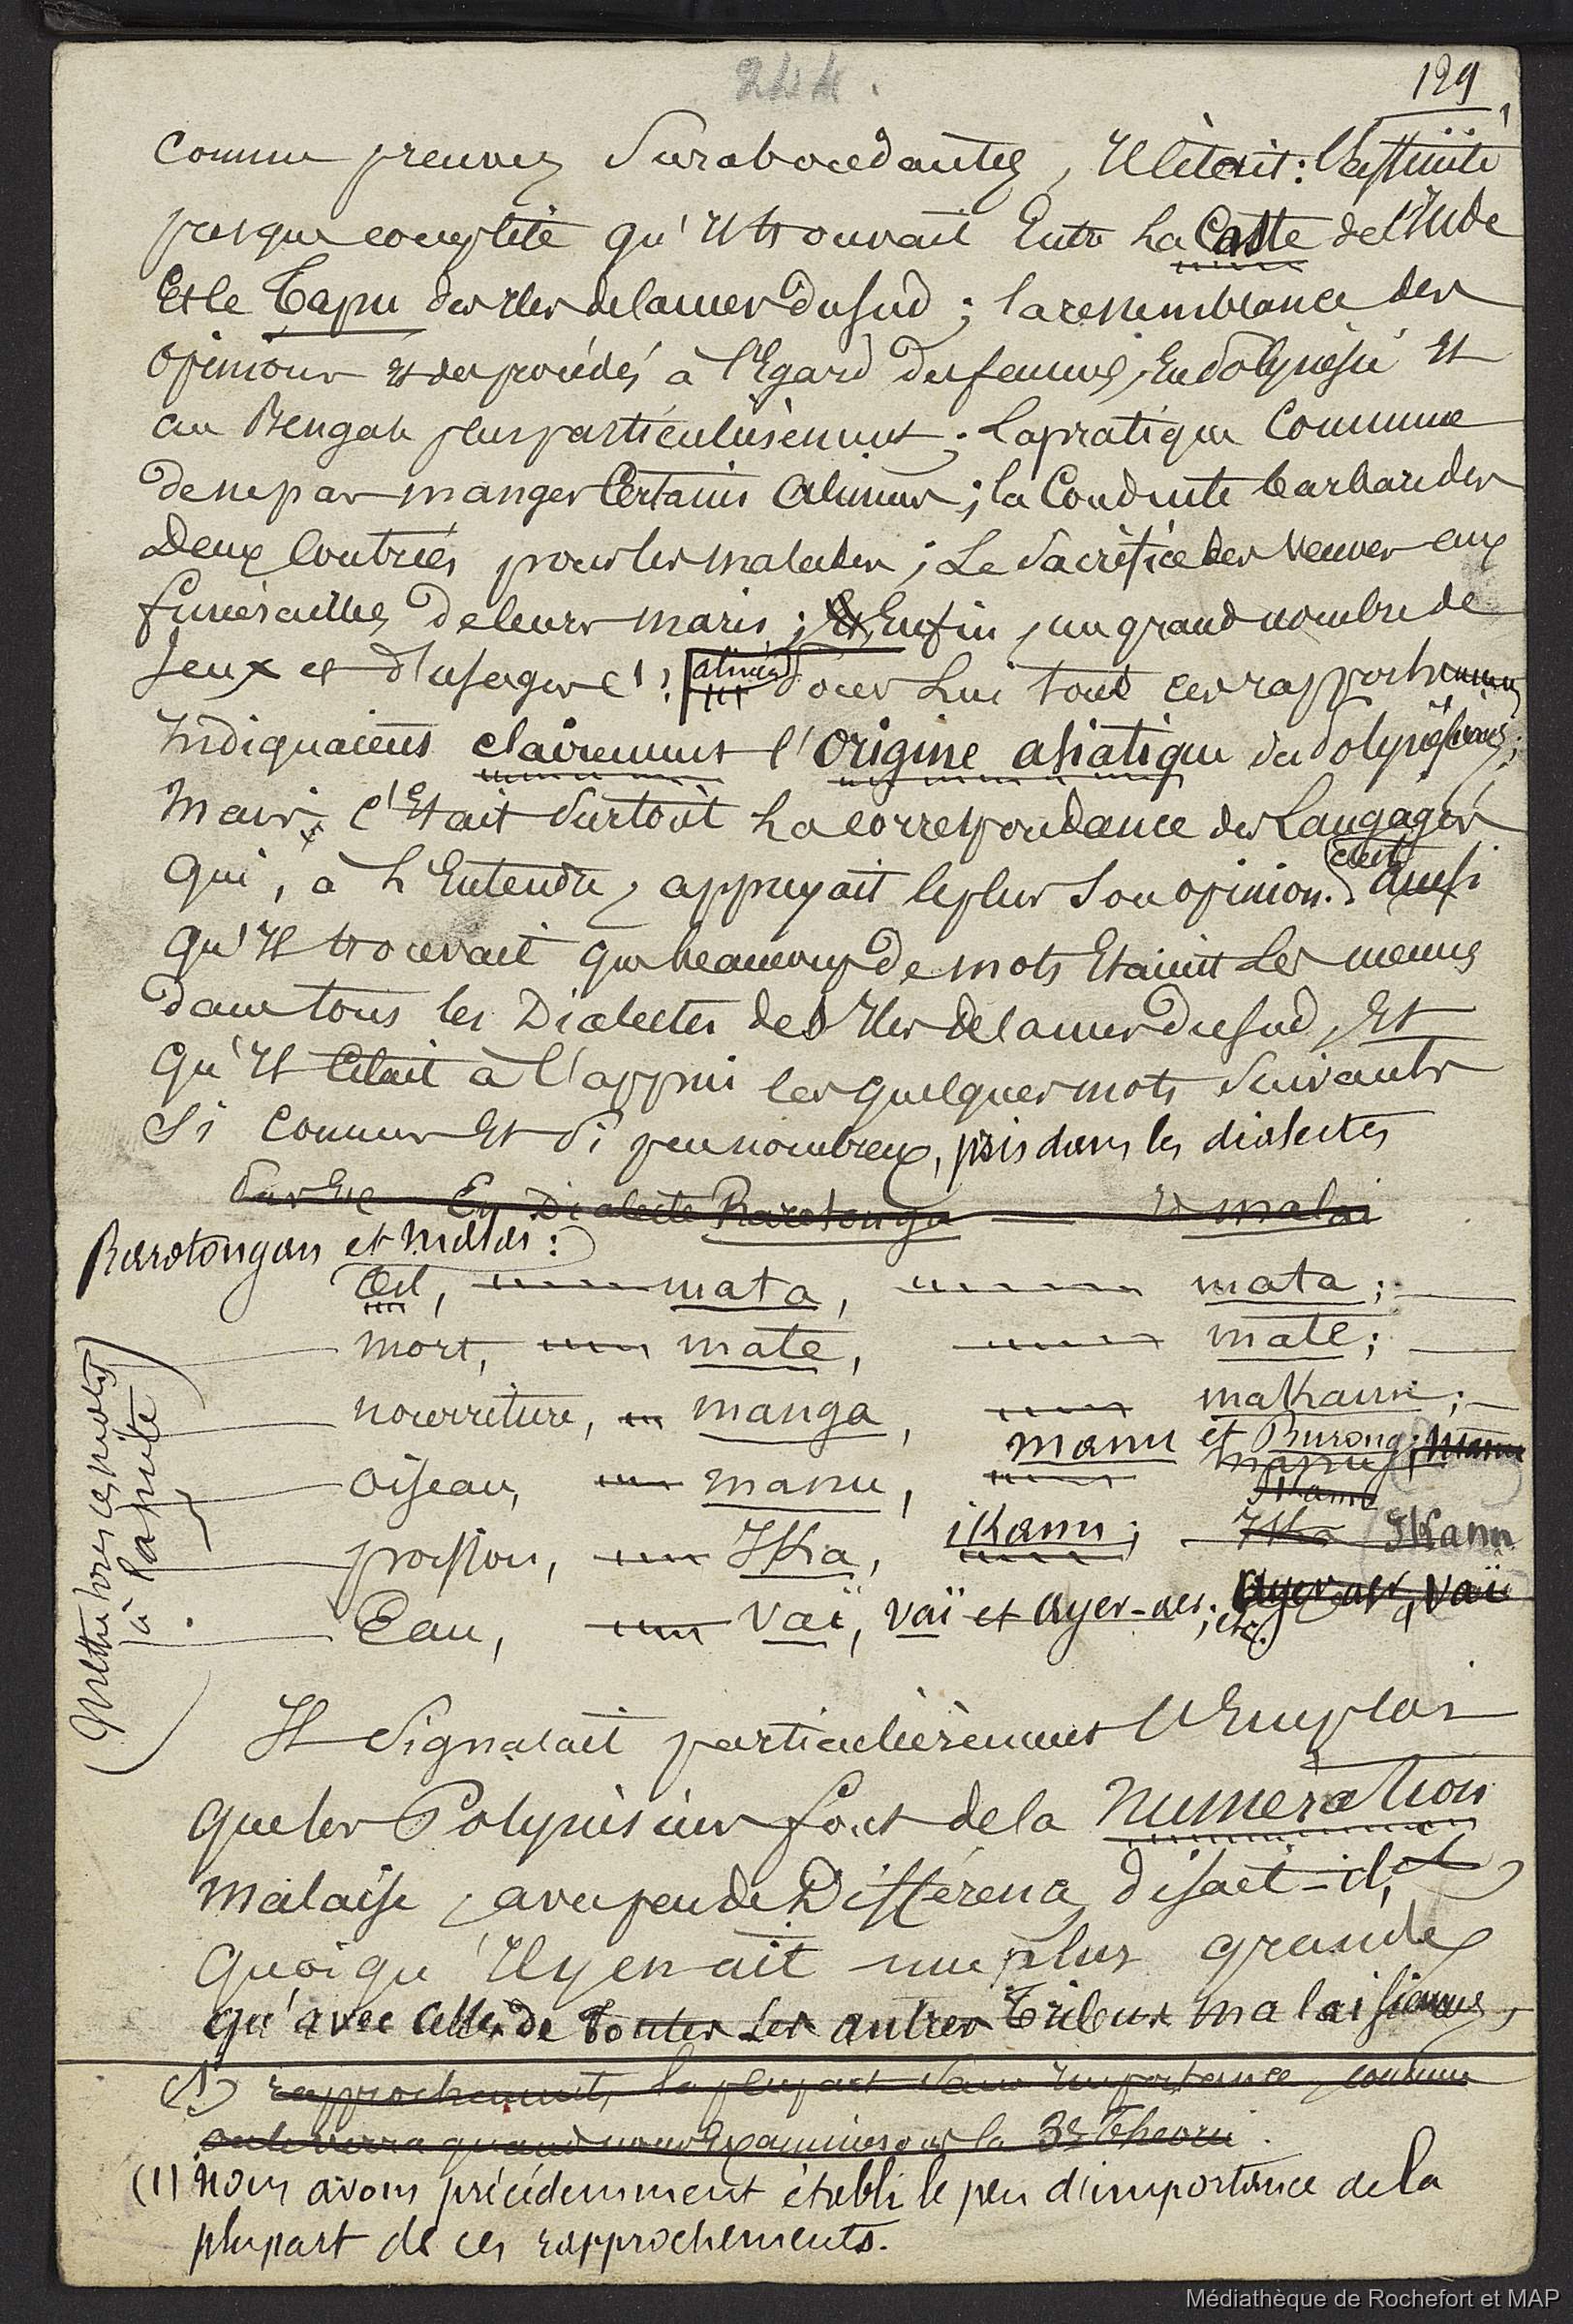 244.
129
comme preuves surabondantes, Il citait: l'affinité
presque complète qu'Il trouvait Entre La Caste de l'Inde
Et le Tapu des Iles de la mer du sud; la ressemblance des
opinions Et des procédés à l'Egard des femmes, En Polynésie Et
au Bengale plus particulièrement; La pratique Commune
de ne pas manger Certains Aliments; la Conduite barbare des
Deux Contrées pour les malades; Le Sacrifice des veuves aux
funérailles de leurs maris; Et Enfin, un grand nombre de
Jeux et d'usages (1). alinéa Pour Lui tous ces rapprochements
Indiquaient clairement l'origine asiatique des Polynésiens;
Mais c'Etait surtout La correspondance des Langages
qui, à L'Entendre, appuyait le plus son opinion. C'est Ainsi
qu'Il trouvait que beaucoup de mots Etaient Les mêmes
dans tous les Dialectes des Iles de la mer du sud, Et
qu'Il Citait à l'appui les quelques mots suivants
Si Connus Et si peu nombreux, pris dans les dialectes
En Dialecte Rarotonga Et malai
Rarotongan et Malai:
Œil, mata, mata;
mort, mate, mate;
nourriture, manga, makann;
manu et Burong; manu
oiseau, manu, manu
poisson, Ika, ikann; Ika Ikann
Eau, vaï, vaï et Ayer-aer; etc. Ayer-aer, vaï
(Mettre tous ces mots
à la suite)
Il Signalait particulièrement l'Emploi
que les Polynésiens font de la Numération
Malaise, avec peu de Différence, disait-il, et
quoiqu'Il y en ait une plus grande
qu'avec celle de Toutes Les autres Tribus malaisiennes,
(1) rapprochements, la plupart sans Importance, comme
on le verra quand nous Examinerons la 3e Théorie.
(1) Nous avons précédemment établi le peu d'importance de la
plupart de ces rapprochements.
Médiathèque de Rochefort et MAP